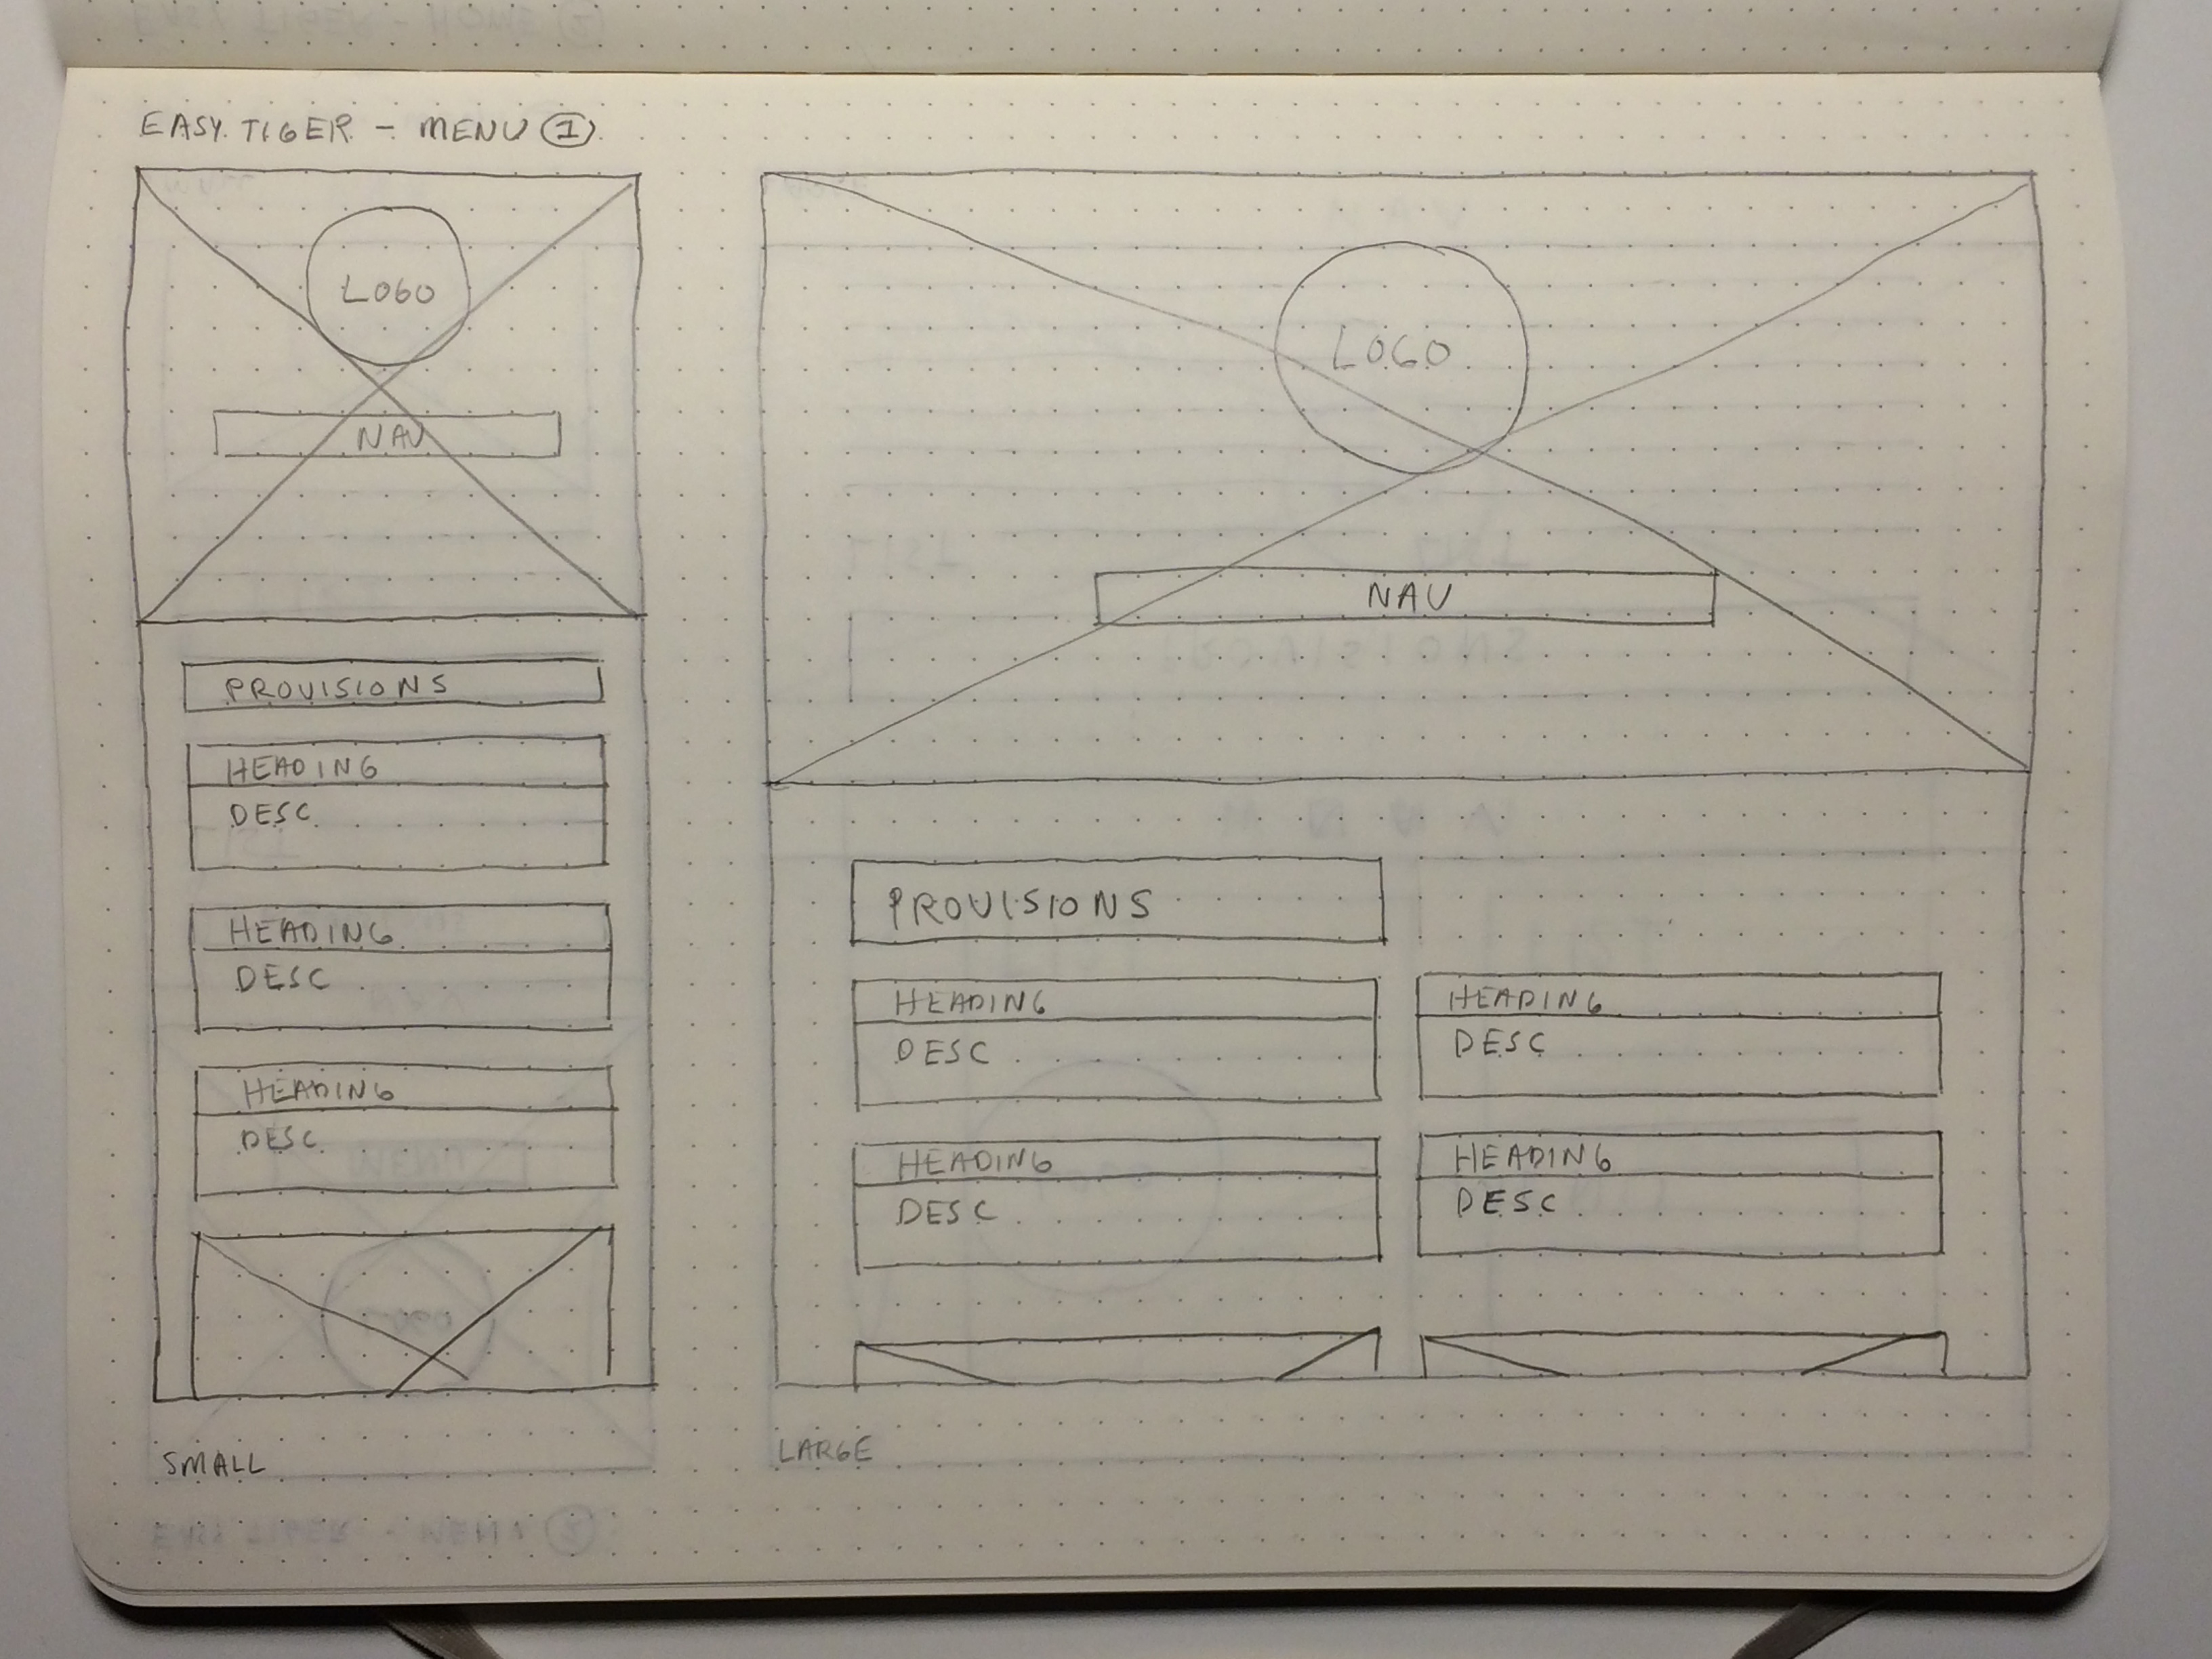 EASY TIGER - MENU 1
LOGO
NAV
PROVISIONS
HEADING
DESC
HEADING
DESC
HEADING
DESC
SMALL
LOGO
NAV
PROVISIONS
HEADING
DESC
HEADING
DESC
HEADING
DESC
HEADING
DESC
LARGE